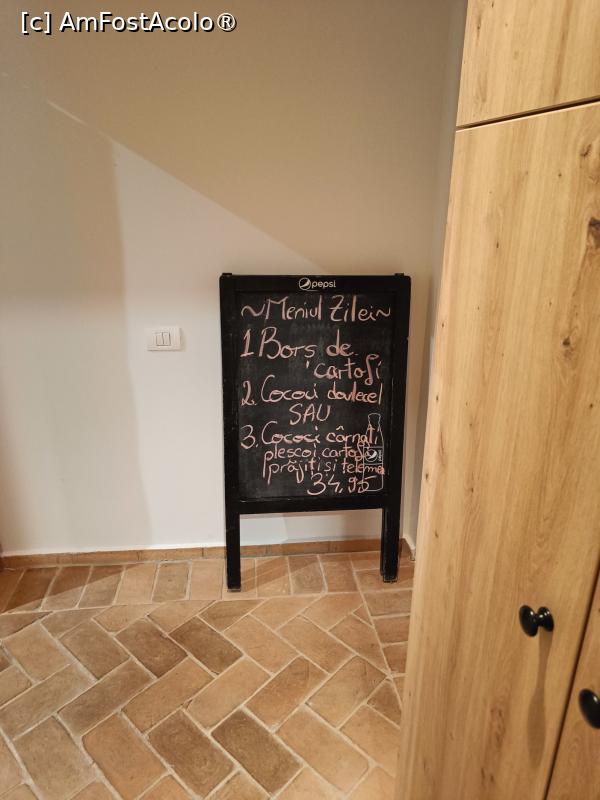 [c] AmFostAcolo®
pepsi
~Meniul Zilei~
1 Bors de
cartofi
2. Cococi dovlecel
SAU
3. Cococi cârnați
plescoi cartofi
prăjiți si telemea
34,95